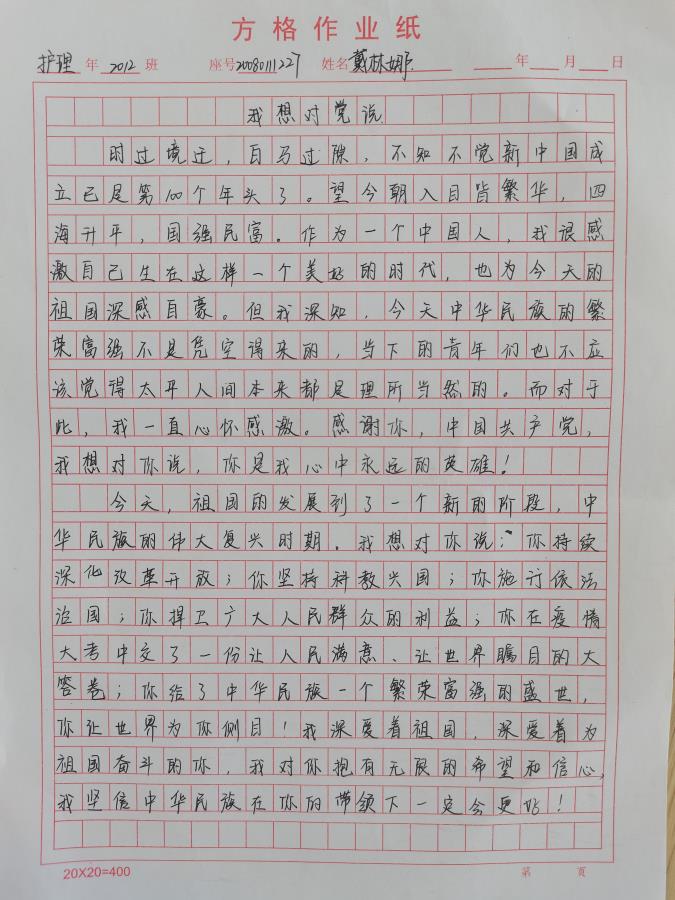 方格作业纸
护理 年 2012 班 座号20080111227 姓名戴林娜 年 月 日
我想对党说
时过境迁，白马过隙，不知不觉新中国成
立已是第100个年头了。望今朝入目皆繁华，四
海升平，国强民富。作为一个中国人，我很感
激自己生在这样一个美好的时代，也为今天的
祖国深感自豪。但我深知，今天中华民族的繁
荣富强不是凭空得来的，当下的青年们也不应
该觉得太平人间本来都是理所当然的。而对于
此，我一直心怀感激。感谢你，中国共产党，
我想对你说，你是我心中永远的英雄！
今天，祖国的发展到了一个新的阶段，中
华民族的伟大复兴时期。我想对你说：“你持续
深化改革开放；你坚持科教兴国；你施行依法
治国；你捍卫广大人民群众的利益；你在疫情
大考中交了一份让人民满意、让世界瞩目的大
答卷；你给了中华民族一个繁荣富强的盛世，
你让世界为你侧目！我深爱着祖国，深爱着为
祖国奋斗的你，我对你抱有无限的希望和信心，
我坚信中华民族在你的带领下一定会更好！
20X20=400 第 页